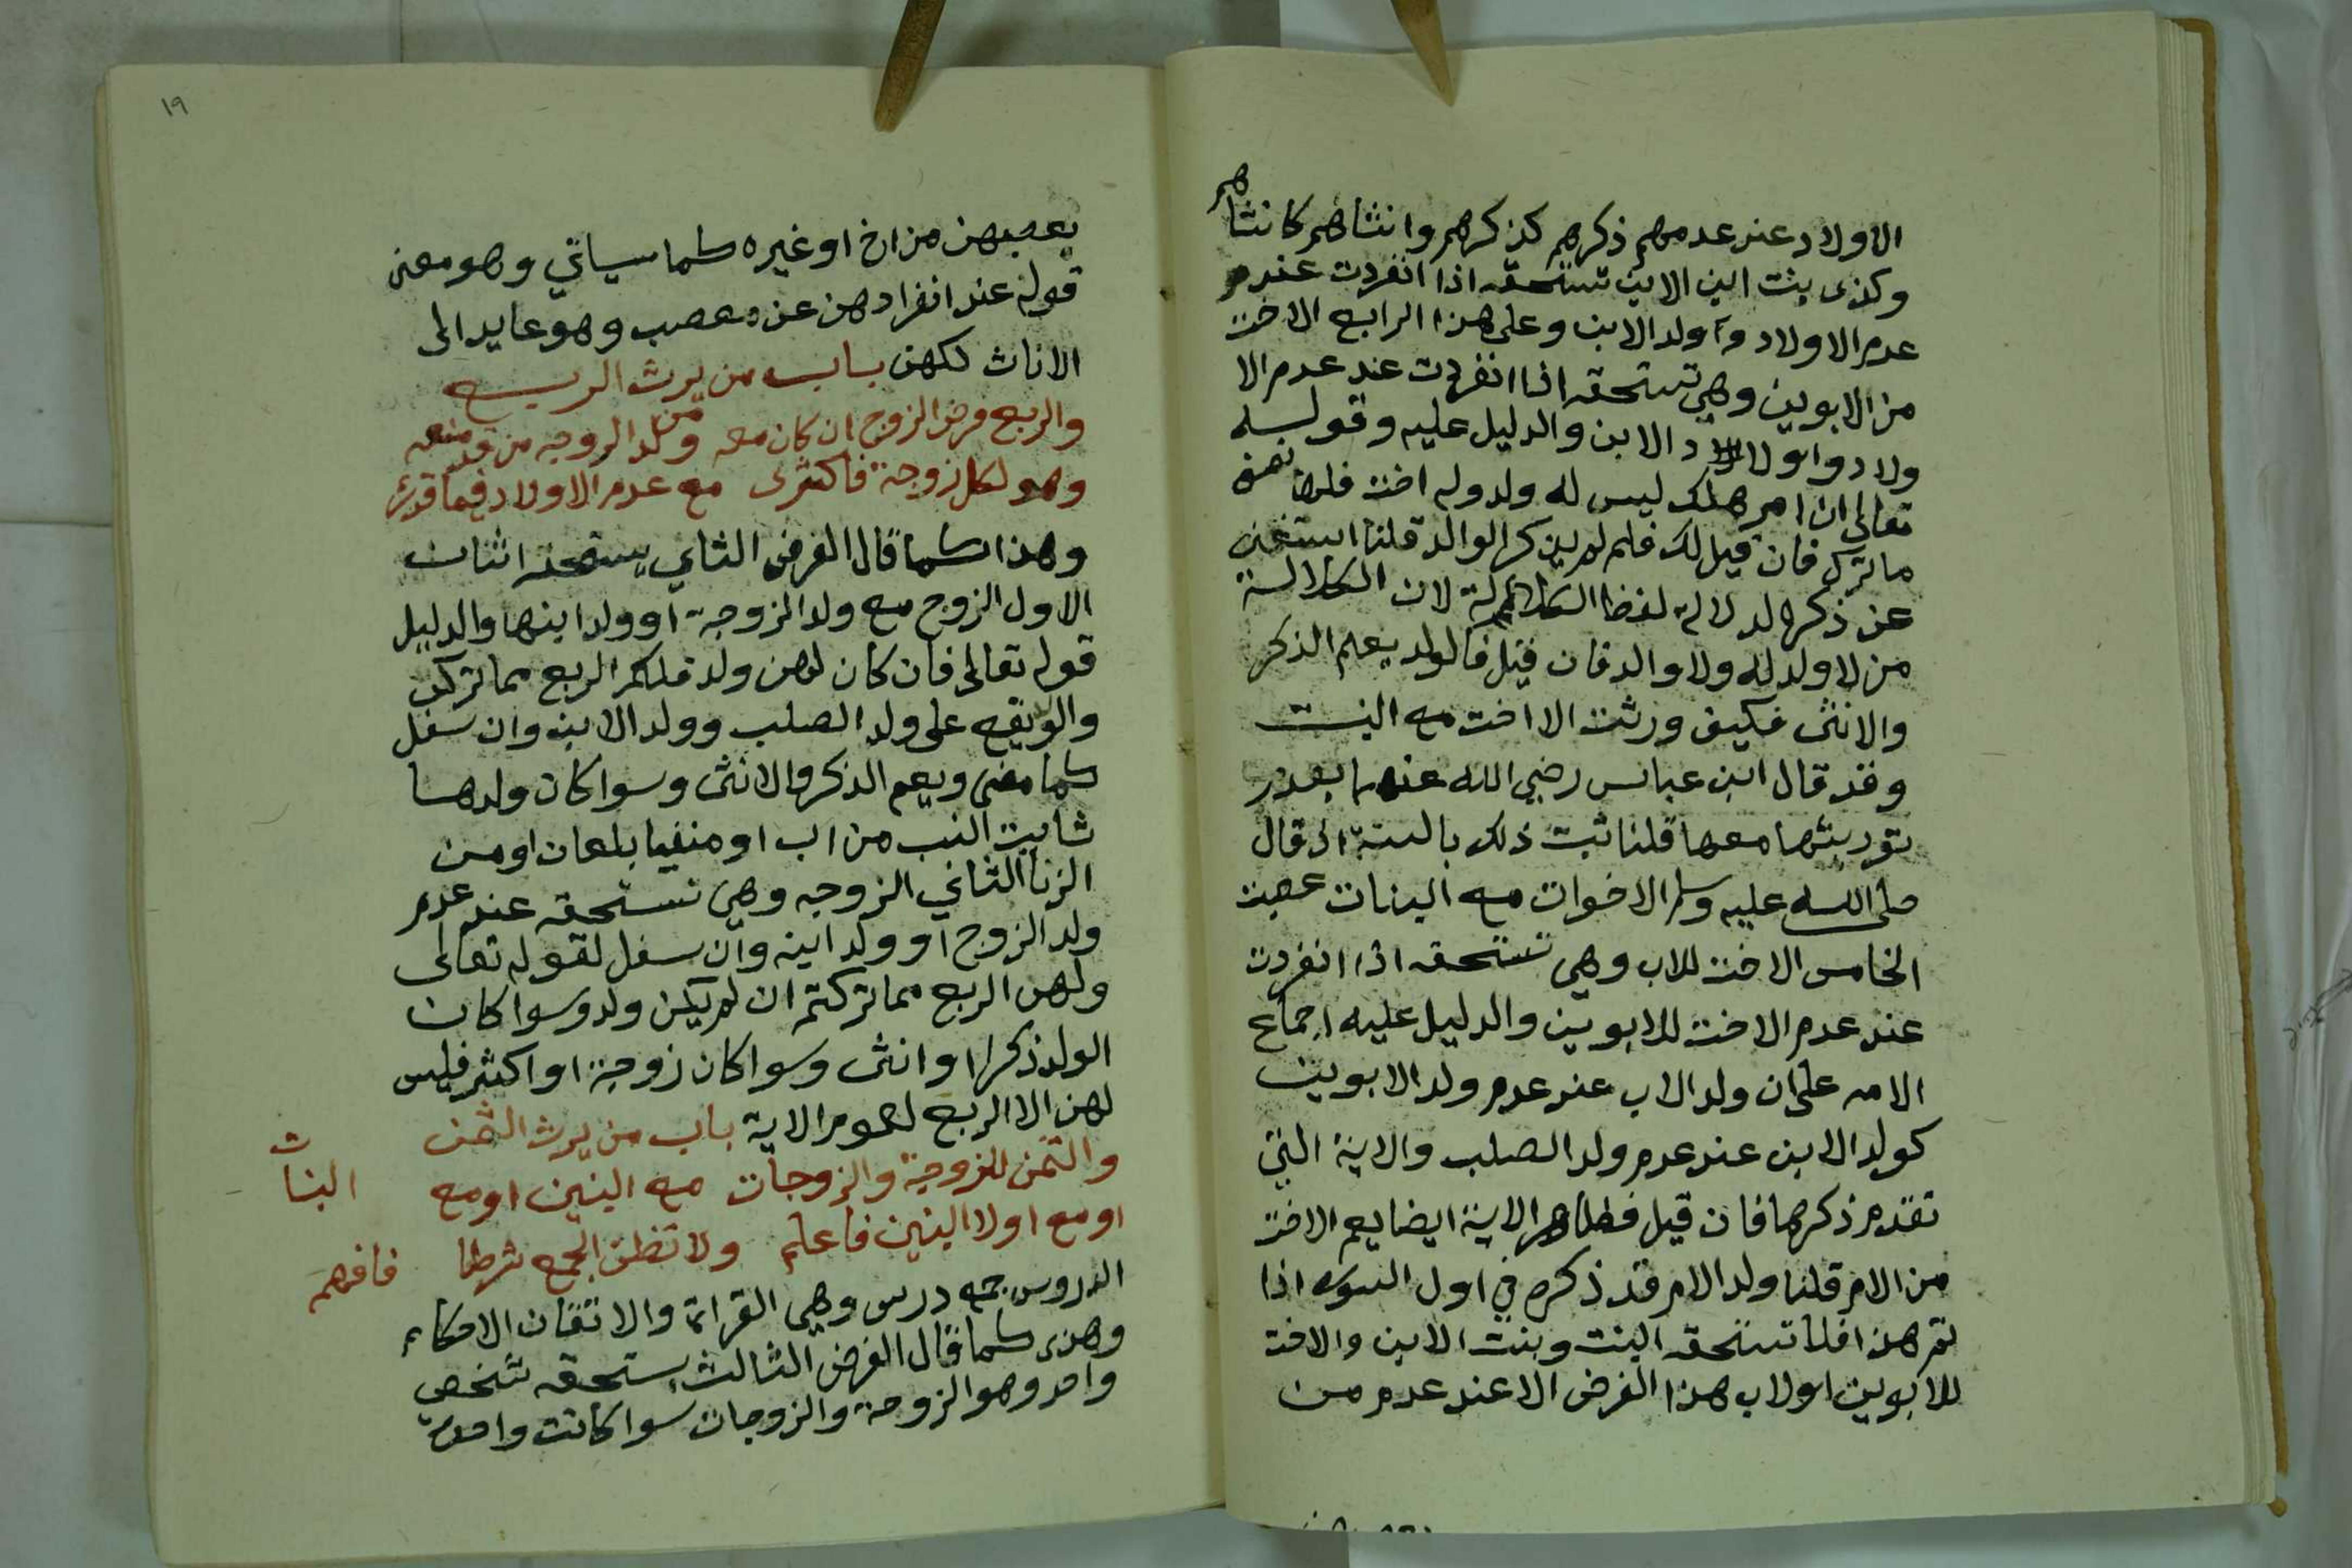 الاولاد عند عدمهم ذكرهم كذكرهم وانثاهم كانثاهم
وكذى بنت ابن الابن تستحقه اذا انفردت عند
عدم الاولاد واولد الابن وعلى هذا الرابع الاخت
من الابوين وهي تستحقه اذا انفردت عند عدم الا
ولاد واولاد الابن والدليل عليه وقوله
تعالى ان امر هلك ليس له ولد وله اخت فلها نصف
ما ترك فان قيل لك فلم لم يذكر الوالد قلنا استغنى
عن ذكره لدلالة لفظ الكلالة لان الكلالة
من لا ولد له ولا والد فان قيل فالولد يعلم الذكر
والانثى فكيف ورثت الاخت مع البنت
وقد قال ابن عباس رضي الله عنهما بعدم
توريثها معها قلنا ثبت ذلك بالسنة اذ قال
صلى الله عليه وسلم الاخوات مع البنات عصبة
الخامس الاخت للاب وهي تستحقه اذا انفردت
عند عدم الاخت للابوين والدليل عليه اجماع
الامه على ان ولد الاب عند عدم ولد الابوين
كولد الابن عند عدم ولد الصلب والاية التي
تقدم ذكرها فان قيل فظاهر الاية ايضا يعم الاخت
من الام قلنا ولد الام قد ذكره في اول السوره اذا
تم هذا فلا تستحقه البنت وبنت الابن والاخت
للابوين اولاب هذا الفرض الا عند عدم من
١٩
يعصبهن من اخ او غيره كما سياتي وهو معنى
قوله عند انفرادهن عن معصب وهو عايد الى
الاناث لكهن باب من يرث الربع
والربع فرض الزوج ان كان معه من ولد الزوجه من قد منعه
وهو لكل زوجة فاكثرى مع عدم الاولاد فيما قدر
وهذا كما قال الفرض الثاني يستحقه اثنان
الاول الزوج مع ولد الزوجة او ولد ابنها والدليل
قوله تعالى فان كان لهن ولد فلكم الربع مما تركن
والولد يقع على ولد الصلب وولد الابن وان سفل
كما مضى ويعم الذكر والانثى وسوا كان ولدها
ثابت النسب من اب او منفيا بلعان او من
الزنا الثاني الزوجه وهي تستحقه عند عدم
ولد الزوج او ولد ابنه وان سفل لقوله تعالى
ولهن الربع مما تركتم ان لم يكن ولد وسوا كان
الولد ذكرا او انثى وسوا كان زوجة او اكثر فليس
لهن الا الربع لعموم الاية باب من يرث الثمن
والثمن للزوجة والزوجات مع البنين او مع البنات
او مع اولا البنين فاعلم ولا تظن الجمع شرطا فافهم
الدروس جمع درس وهي القراة والاتقان الاحكام
وهذه كما قال الفرض الثالث يستحقه شخص
واحد وهو الزوجة والزوجات سوا كانت واحدة